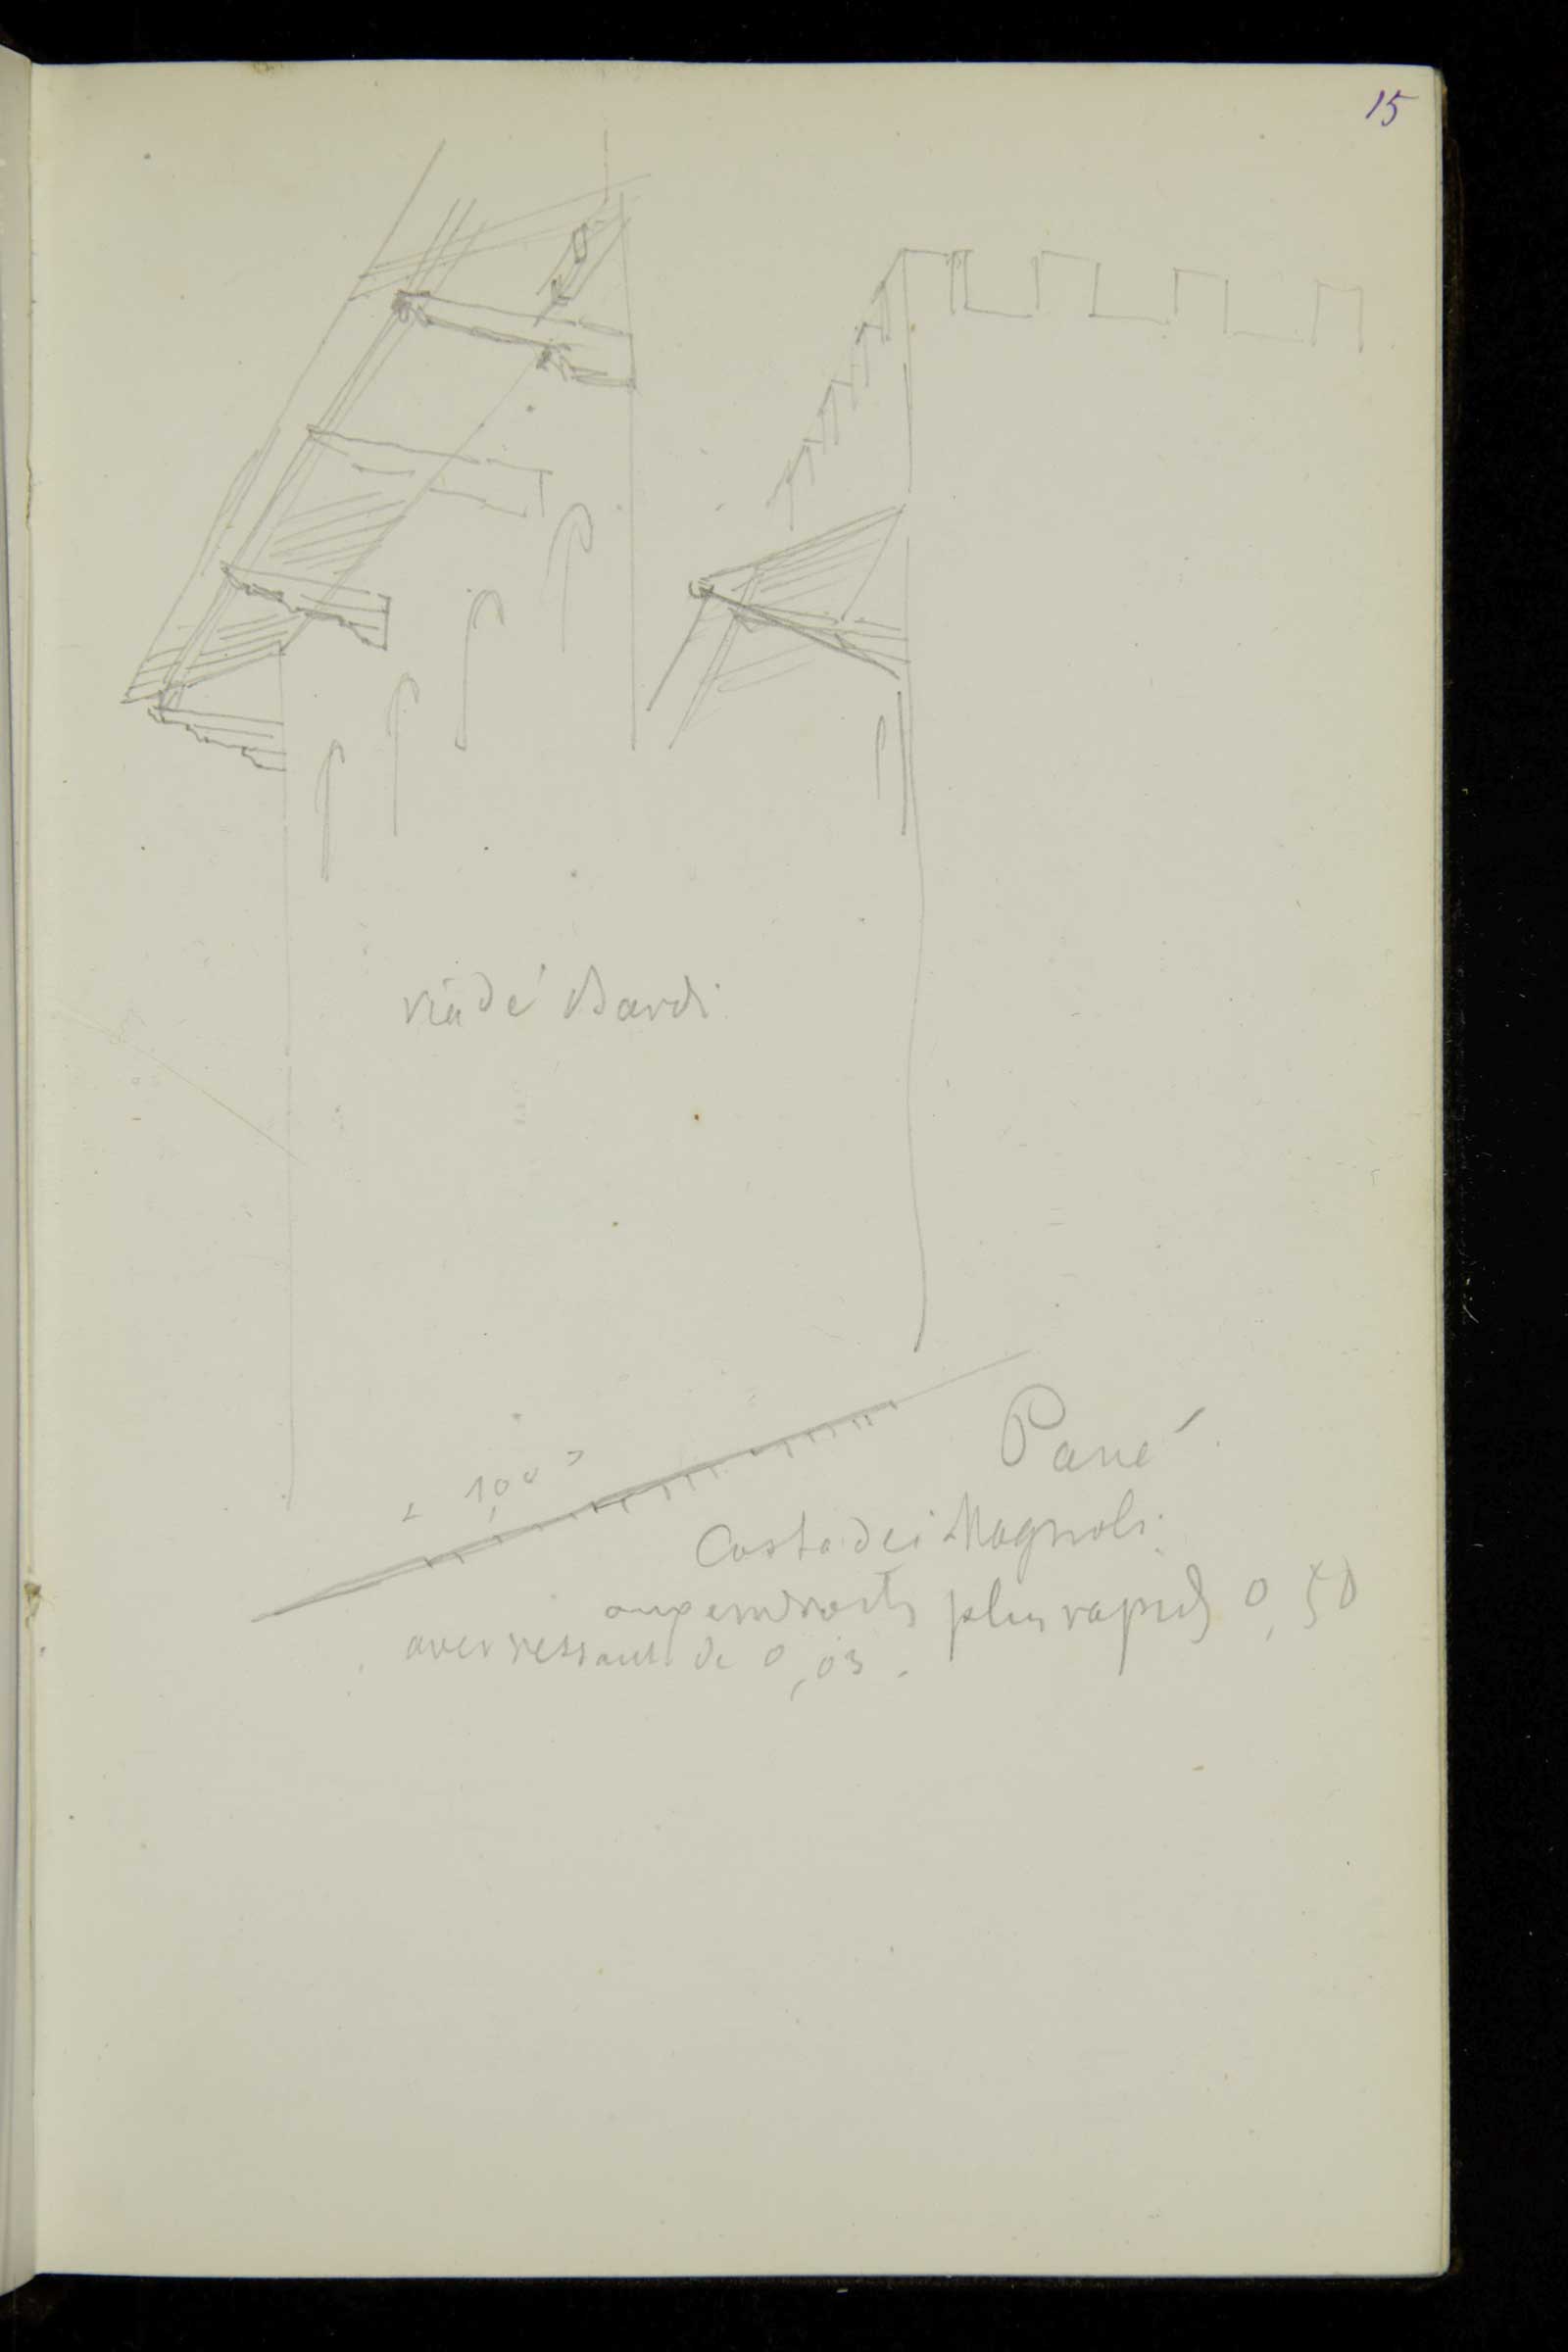 15
via de' Bardi
1,00
Pavé
Costa dei Magnoli
aux endroits plus rapides 0,50
avec ressaut de 0,03.